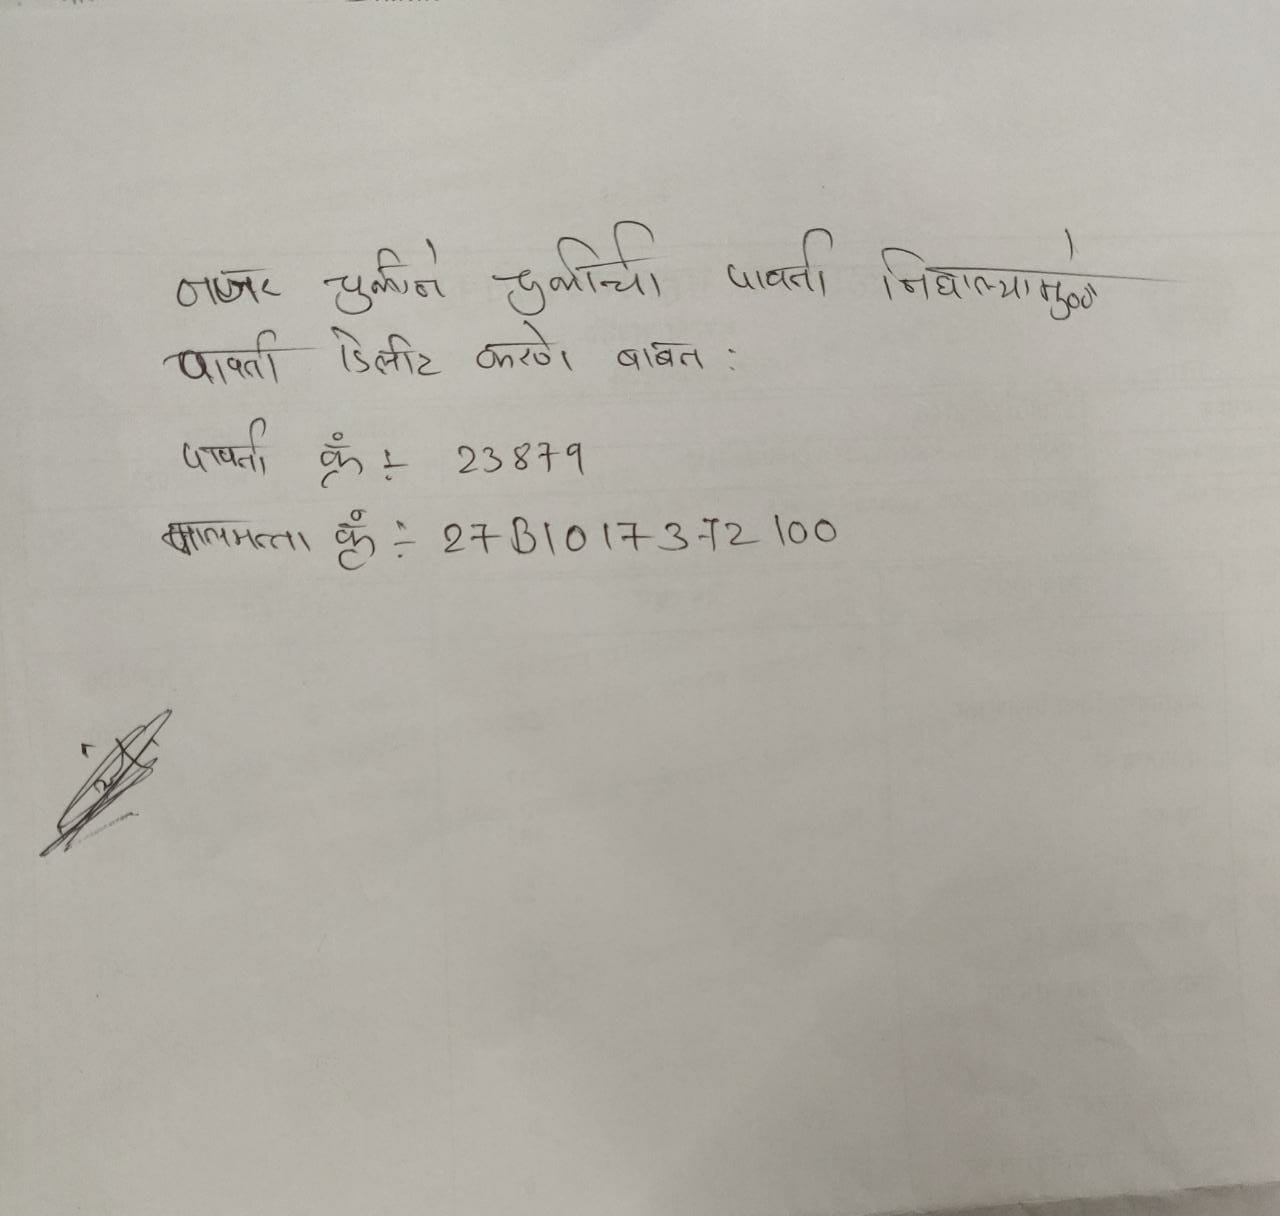 नजर चुकीने चुकीची पावती निघाल्यामुळे
पावती डिलीट करणे बाबत :
पावती क्रं :- 23879
मालमत्ता क्रं :- 27B1017372100